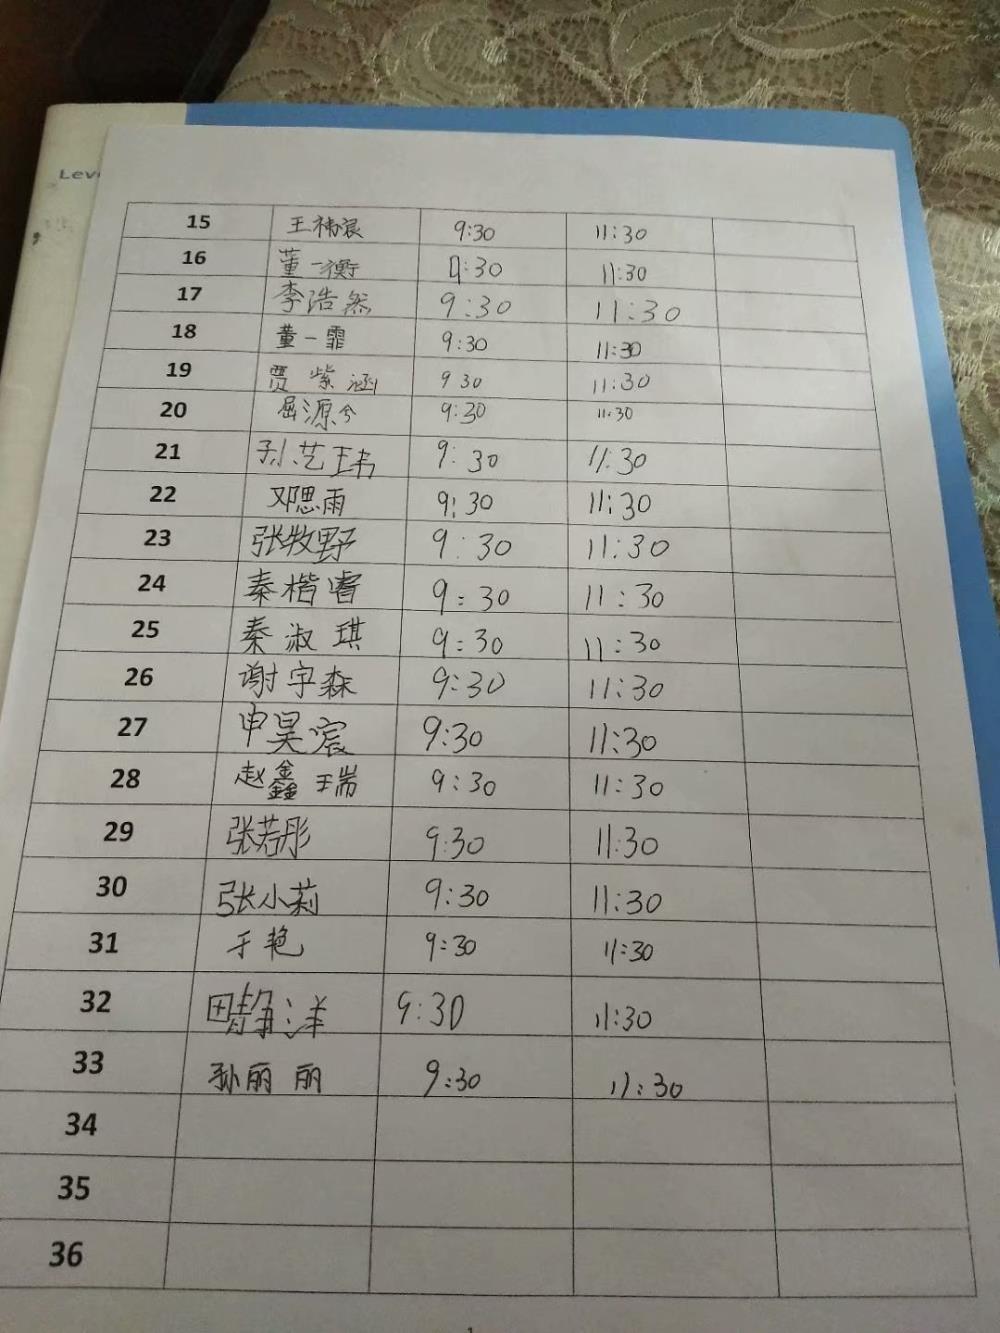 Lev
15 王祎宸 9:30 11:30
16 董一衡 9:30 11:30
17 李浩然 9:30 11:30
18 董一霏 9:30 11:30
19 贾紫涵 9 30 11:30
20 屈源兮 9:30 11:30
21 孙艺玮 9:30 11:30
22 邓思雨 9:30 11:30
23 张牧野 9:30 11:30
24 秦楷睿 9:30 11:30
25 秦淑琪 9:30 11:30
26 谢宇森 9:30 11:30
27 申昊宸 9:30 11:30
28 赵鑫瑞 9:30 11:30
29 张若彤 9:30 11:30
30 张小莉 9:30 11:30
31 于艳 9:30 11:30
32 田静洋 9:30 11:30
33 孙丽丽 9:30 11:30
34
35
36